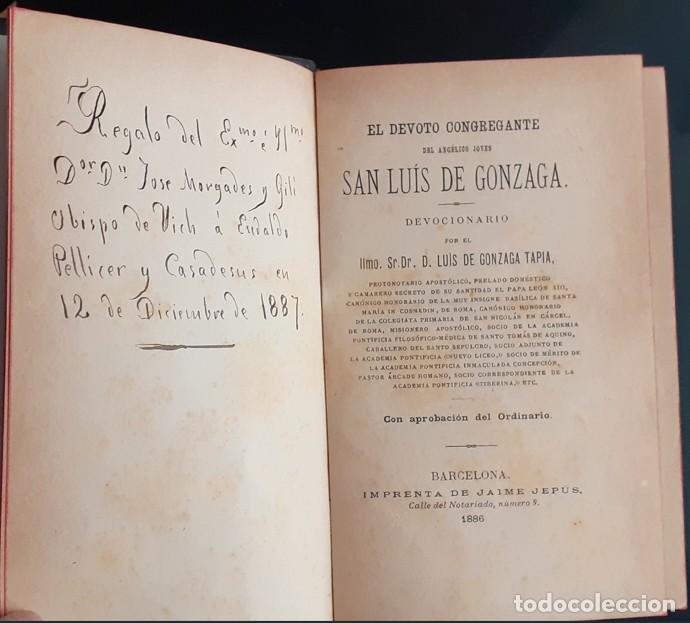 Regalo del Exmo é Ylmo
Dor Dn Jose Morgades y Gili
Obispo de Vich á Eudaldo
Pellicer y Casadesus en
12 de Diciembre de 1887.
EL DEVOTO CONGREGANTE
DEL ANGÉLICO JOVEN
SAN LUÍS DE GONZAGA.
DEVOCIONARIO
POR EL
Ilmo. Sr. Dr. D. LUÍS DE GONZAGA TAPIA,
PROTONOTARIO APOSTÓLICO, PRELADO DOMÉSTICO
Y CAMARERO SECRETO DE SU SANTIDAD EL PAPA LEON XIII,
CANÓNIGO HONORARIO DE LA MUY INSIGNE BASÍLICA DE SANTA
MARÍA IN COSMEDIN, DE ROMA, CANÓNIGO HONORARIO
DE LA COLEGIATA PRIMARIA DE SAN NICOLÁS EN CÁRCEL,
DE ROMA, MISIONERO APOSTÓLICO, SOCIO DE LA ACADEMIA
PONTIFICIA FILOSÓFICO-MÉDICA DE SANTO TOMÁS DE AQUINO,
CABALLERO DEL SANTO SEPULCRO, SOCIO ADJUNTO DE
LA ACADEMIA PONTIFICIA «NUEVO LICEO,» SOCIO DE MÉRITO DE
LA ACADEMIA PONTIFICIA INMACULADA CONCEPCIÓN,
PASTOR ÁRCADE ROMANO, SOCIO CORRESPONDIENTE DE LA
ACADEMIA PONTIFICIA «TIBERINA,» ETC.
Con aprobación del Ordinario.
BARCELONA.
IMPRENTA DE JAIME JEPÚS,
Calle del Notariado, número 9.
1886
todocoleccion.net